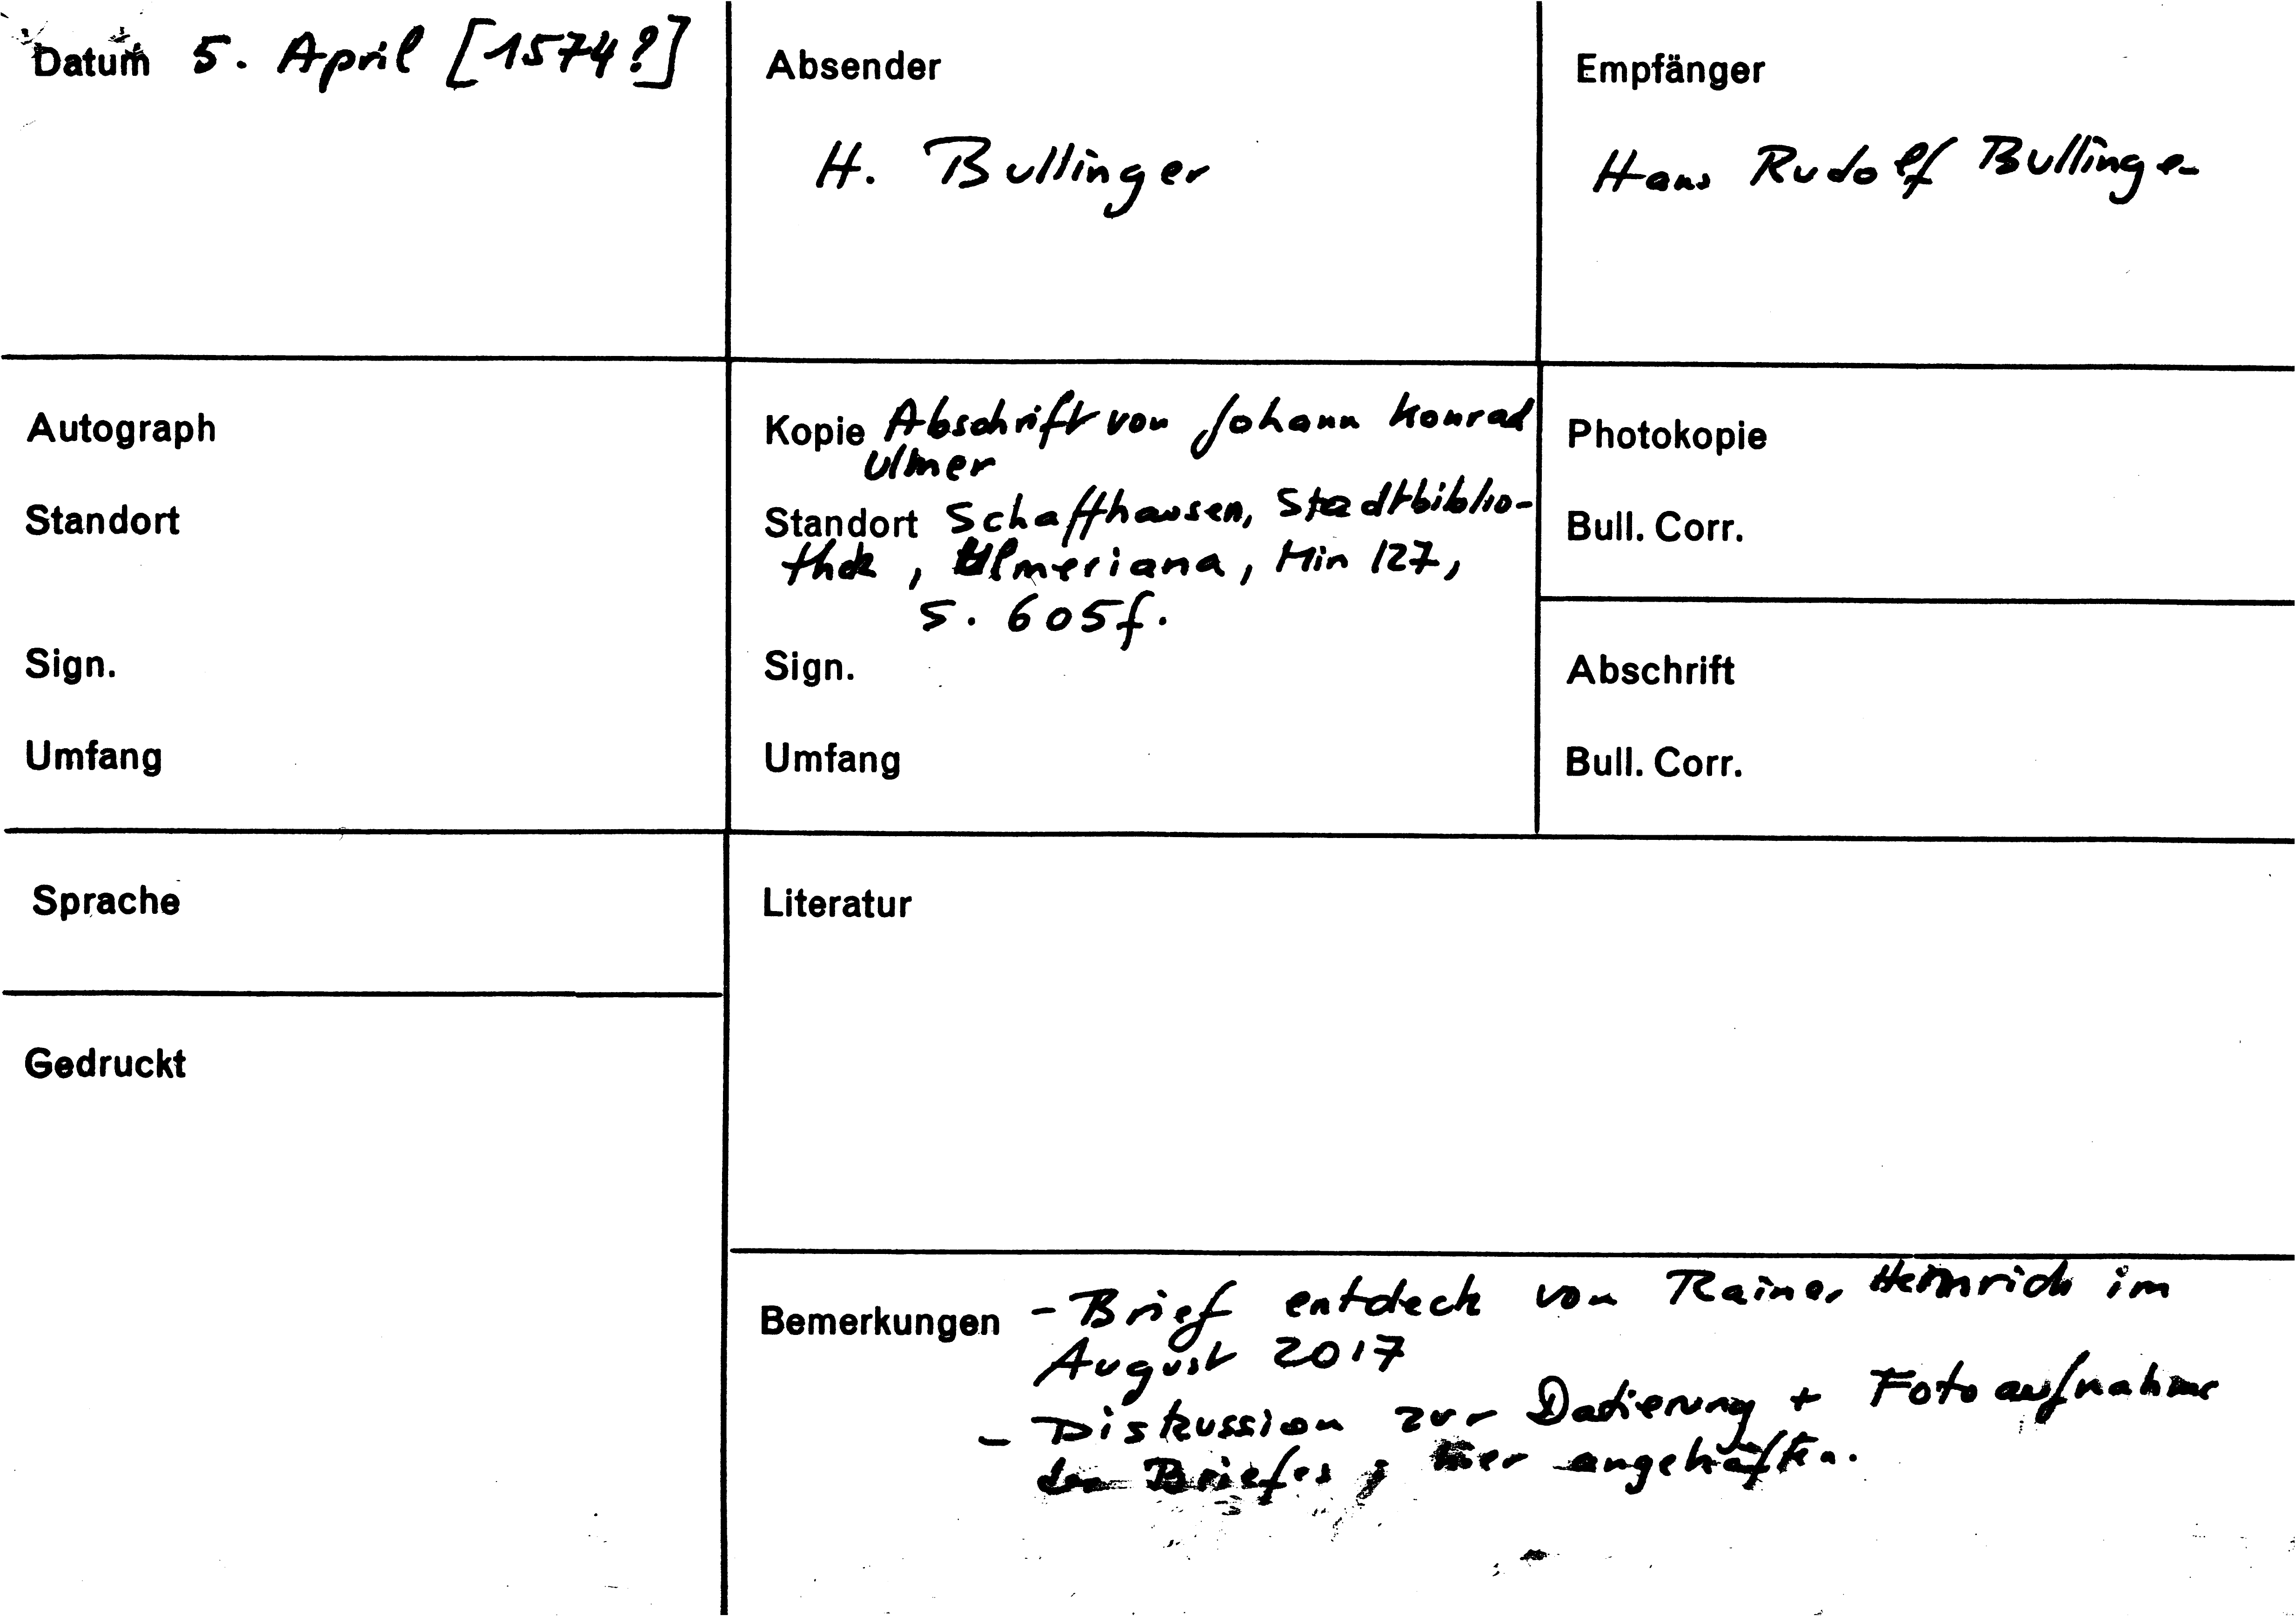 Datum 5. April [1574?]
Absender
H. Bullinger
Empfänger
Hans Rudolf Bullinger
Autograph
Standort
Sign.
Umfang
Kopie Abschrift von Johann Konrad
Ulmer
Standort Schaffhausen, Stadtbiblio-
thek, Ulmeriana, Min 127,
S. 605f.
Sign.
Umfang
Photokopie
Bull. Corr.
Abschrift
Bull. Corr.
Sprache
Gedruckt
Literatur
Bemerkungen - Brief entdeck von Rainer Heinrich im
August 2017
- Diskussion zur Datierung + Fotoaufnahme
des Briefes, hier angehäften.